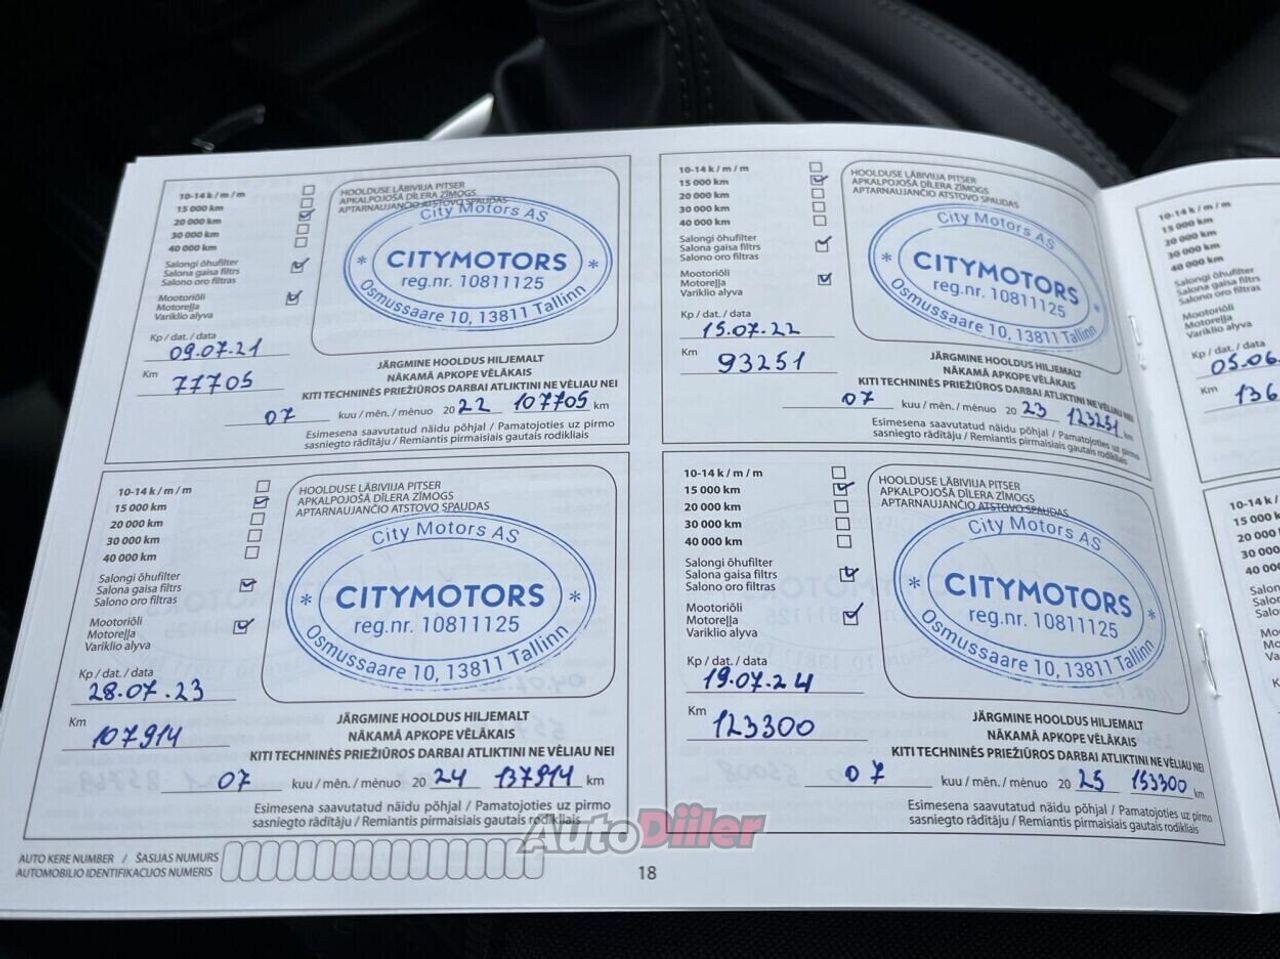 10-14 k / m / m
15 000 km
20 000 km
30 000 km
40 000 km
Salongi õhufilter
Salona gaisa filtrs
Salono oro filtras
Mootoriõli
Motoreļļa
Variklio alyva
Kp / dat. / data
09.07.21
Km
77705
HOOLDUSE LÄBIVIIJA PITSER
APKALPOJOŠĀ DĪLERA ZĪMOGS
APTARNAUJANČIO ATSTOVO SPAUDAS
City Motors AS
* CITYMOTORS *
reg.nr. 10811125
Osmussaare 10, 13811 Tallinn
JÄRGMINE HOOLDUS HILJEMALT
NĀKAMĀ APKOPE VĒLĀKAIS
KITI TECHNINĖS PRIEŽIŪROS DARBAI ATLIKTINI NE VĖLIAU NEI
07 kuu / mēn. / mėnuo 20 22 107705 km
Esimesena saavutatud näidu põhjal / Pamatojoties uz pirmo
sasniegto rādītāju / Remiantis pirmaisiais gautais rodikliais
10-14 k / m / m
15 000 km
20 000 km
30 000 km
40 000 km
Salongi õhufilter
Salona gaisa filtrs
Salono oro filtras
Mootoriõli
Motoreļļa
Variklio alyva
Kp / dat. / data
15.07.22
Km
93251
HOOLDUSE LÄBIVIIJA PITSER
APKALPOJOŠĀ DĪLERA ZĪMOGS
APTARNAUJANČIO ATSTOVO SPAUDAS
City Motors AS
* CITYMOTORS *
reg.nr. 10811125
Osmussaare 10, 13811 Tallinn
JÄRGMINE HOOLDUS HILJEMALT
NĀKAMĀ APKOPE VĒLĀKAIS
KITI TECHNINĖS PRIEŽIŪROS DARBAI ATLIKTINI NE VĖLIAU NEI
07 kuu / mēn. / mėnuo 20 23 123251 km
Esimesena saavutatud näidu põhjal / Pamatojoties uz pirmo
sasniegto rādītāju / Remiantis pirmaisiais gautais rodikliais
10-14 k / m / m
15 000 km
20 000 km
30 000 km
40 000 km
Salongi õhufilter
Salona gaisa filtrs
Salono oro filtras
Mootoriõli
Motoreļļa
Variklio alyva
Kp / dat. / data
28.07.23
Km
107914
HOOLDUSE LÄBIVIIJA PITSER
APKALPOJOŠĀ DĪLERA ZĪMOGS
APTARNAUJANČIO ATSTOVO SPAUDAS
City Motors AS
* CITYMOTORS *
reg.nr. 10811125
Osmussaare 10, 13811 Tallinn
JÄRGMINE HOOLDUS HILJEMALT
NĀKAMĀ APKOPE VĒLĀKAIS
KITI TECHNINĖS PRIEŽIŪROS DARBAI ATLIKTINI NE VĖLIAU NEI
07 kuu / mēn. / mėnuo 20 24 137914 km
Esimesena saavutatud näidu põhjal / Pamatojoties uz pirmo
sasniegto rādītāju / Remiantis pirmaisiais gautais rodikliais
10-14 k / m / m
15 000 km
20 000 km
30 000 km
40 000 km
Salongi õhufilter
Salona gaisa filtrs
Salono oro filtras
Mootoriõli
Motoreļļa
Variklio alyva
Kp / dat. / data
19.07.24
Km
123300
HOOLDUSE LÄBIVIIJA PITSER
APKALPOJOŠĀ DĪLERA ZĪMOGS
APTARNAUJANČIO ATSTOVO SPAUDAS
City Motors AS
* CITYMOTORS *
reg.nr. 10811125
Osmussaare 10, 13811 Tallinn
JÄRGMINE HOOLDUS HILJEMALT
NĀKAMĀ APKOPE VĒLĀKAIS
KITI TECHNINĖS PRIEŽIŪROS DARBAI ATLIKTINI NE VĖLIAU NEI
07 kuu / mēn. / mėnuo 20 25 153300 km
Esimesena saavutatud näidu põhjal / Pamatojoties uz pirmo
sasniegto rādītāju / Remiantis pirmaisiais gautais rodikliais
AUTO KERE NUMBER / ŠASIJAS NUMURS
AUTOMOBILIO IDENTIFIKACIJOS NUMERIS
18
AutoDiiler
10-14 k / m / m
15 000 km
20 000 km
30 000 km
40 000 km
Salongi õhufilter
Salona gaisa filtrs
Salono oro filtras
Mootoriõli
Motoreļļa
Variklio alyva
Kp / dat. / data
05.06.
Km
136
10-14 k /
15 000 k
20 000
30 000
40 000